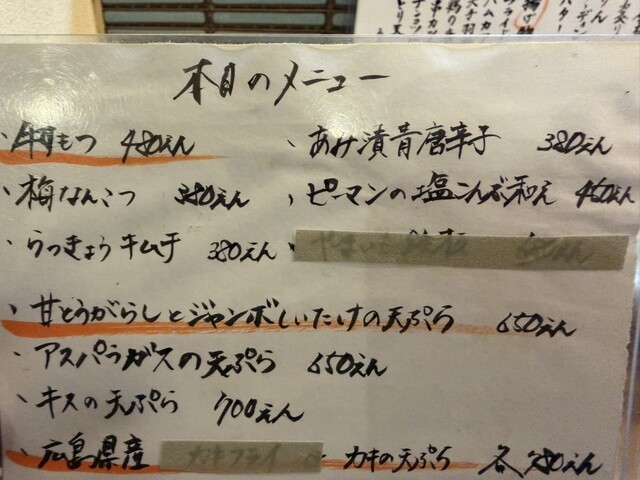 本日のメニュー
、牛もつ 480えん
、あみ漬青唐辛子 380えん
、梅なんこつ 380えん
、ピーマンの塩こんぶ和え 450えん
、らっきょうキムチ 380えん
、甘とうがらしとジャンボしいたけの天ぷら 650えん
、アスパラガスの天ぷら 650えん
、キスの天ぷら 700えん
、広島県産 カキフライ カキの天ぷら 各780えん